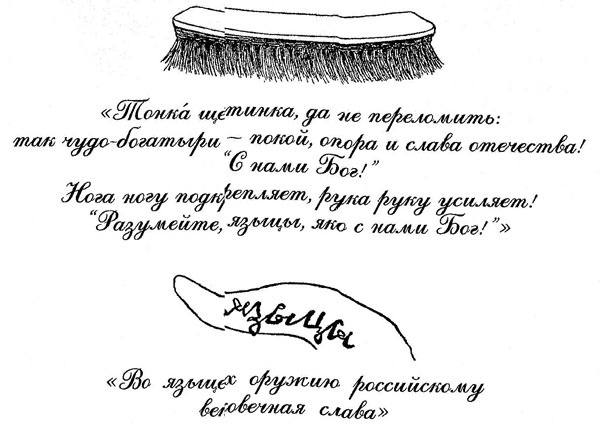 «Тонка́ щетинка, да не переломить:
так чудо-богатыри — покой, опора и слава отечества!
“С нами Бог!”
Нога ногу подкрепляет, рука руку усиляет!
“Разумейте, языцы, яко с нами Бог!”»
языцы
«Во языцех оружию российскому
вековечная слава»